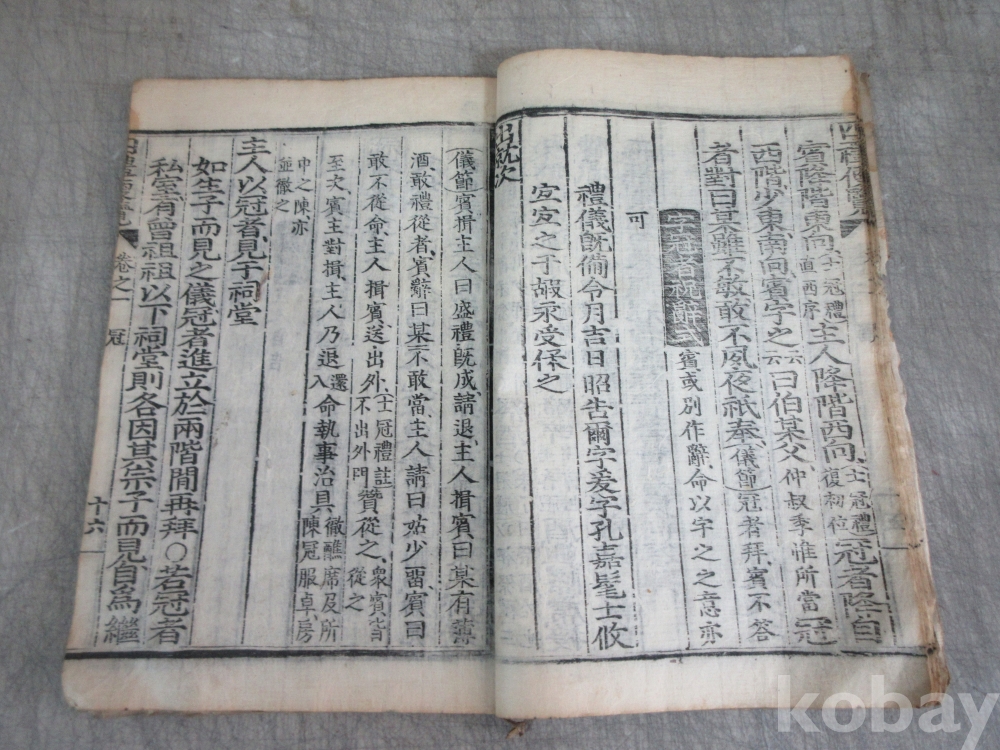 賓降階東向士冠禮直西序主人降階西向士冠禮復初位冠者降自
西階少東南向賓字之云云曰伯某父仲叔季惟所當冠
者對曰某雖不敏敢不夙夜祇奉儀節冠者拜賓不答
字冠者祝辭式賓或別作辭命以字之之意亦
可
禮儀旣備令月吉日昭告爾字爰字孔嘉髦士攸
宜宜之于嘏永受保之
出就次
儀節賓揖主人曰盛禮旣成請退主人揖賓曰某有薄
酒敢禮從者賓辭曰某不敢當主人請曰姑少留賓曰
敢不從命主人揖賓送出外士冠禮註不出外門贊從之衆賓皆從之
至次賓主對揖主人乃退還入命執事治具徹醮席及所陳冠服卓房
中之陳亦並徹之
主人以冠者見于祠堂
如生子而見之儀冠者進立於兩階間再拜○若冠者
私室有曾祖祖以下祠堂則各因其宗子而見自爲繼
卷之一 冠 十六
kobay